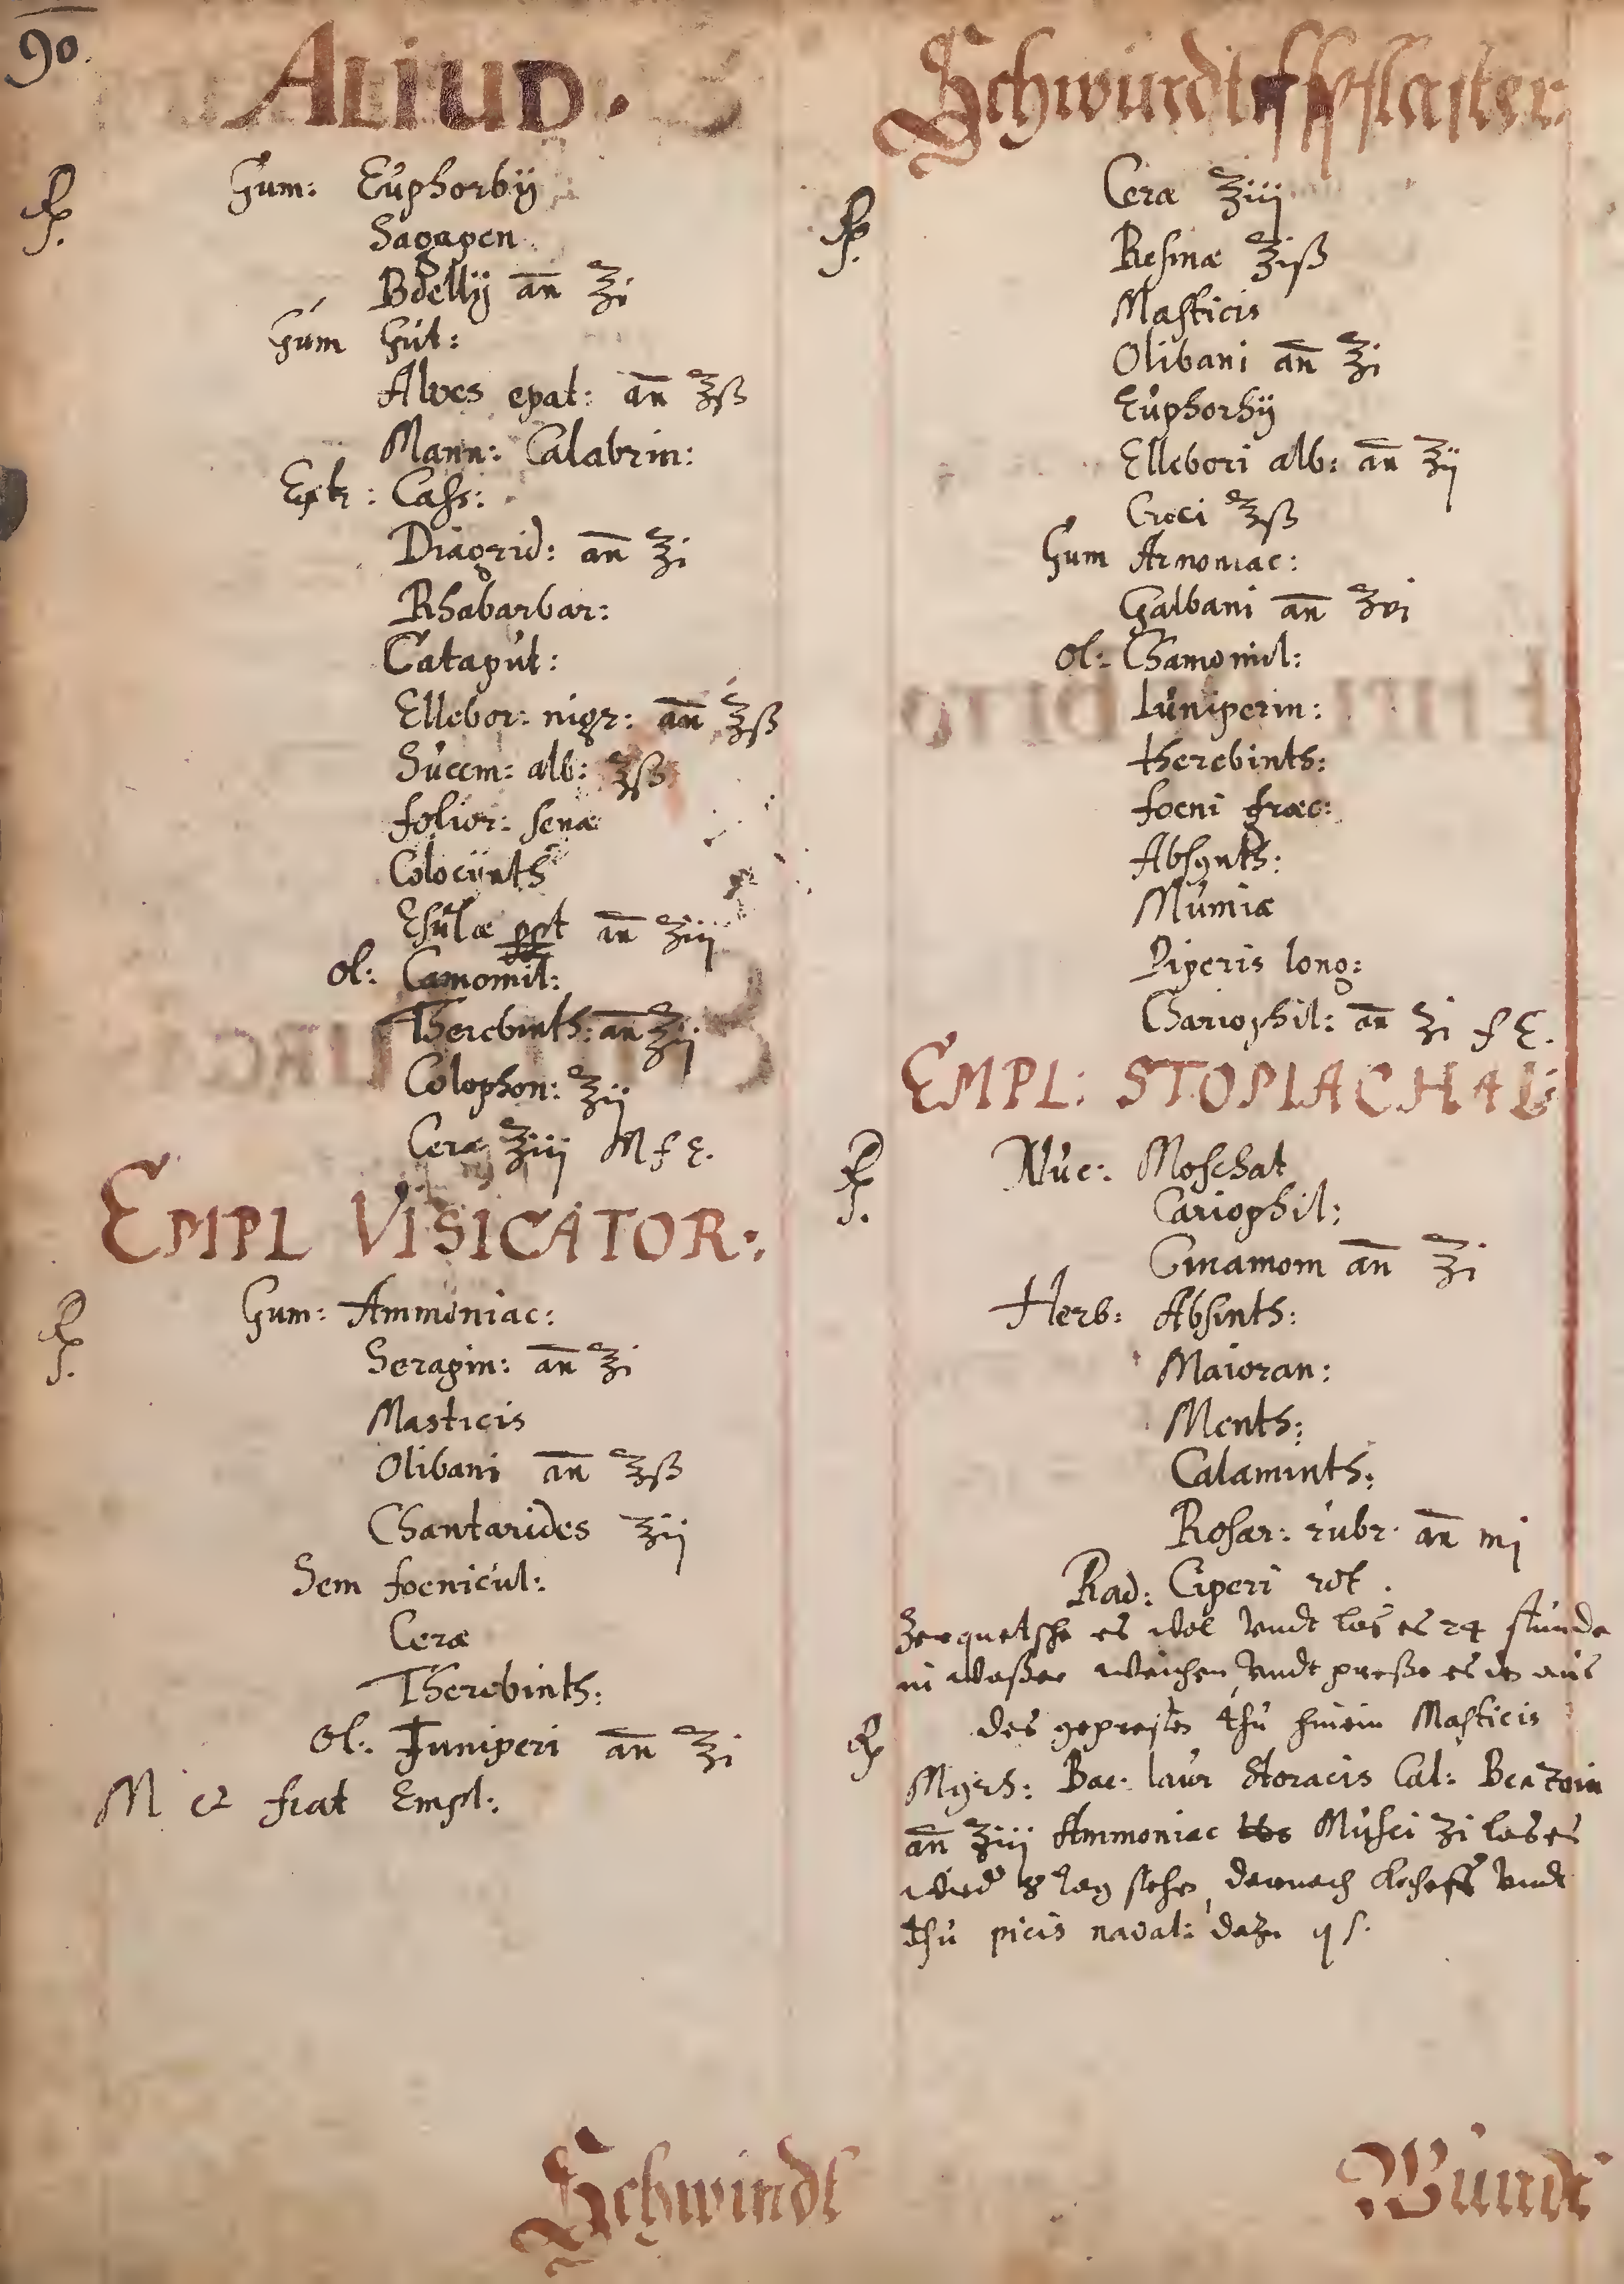 90.
ALIUD.
Rp.
Gum: Euphorbij
Sagapen
Bdellij an ʒi
Gum Gut:
Aloes epat: an ʒß
Mann: Calabrin:
Extr: Cass:
Diagrid: an ʒi
Rhabarbar:
Cataput:
Ellebor: nigr: an ʒß
Succin: alb: ʒß
folior: senæ
Colocÿnth
Esulæ ppt an ʒiij
ol: Camomil:
Therebinth: an ʒij
Colophon: ʒij
Ceræ ʒiij M f E.
EMPL VISICATOR:
Rp.
Gum: Ammoniac:
Seragin: an ʒi
Masticis
Olibani an ʒß
Chantarides ʒij
Sem foenicul:
Ceræ
Therebinth:
Ol: Juniperi an ʒi
M et fiat Empl:
Schwindt
Schwindtsspflaster
Rp.
Ceræ ʒiij
Resinæ ʒiß
Masticis
Olibani an ʒi
Euphorbij
Ellebori alb: an ʒij
Croci ʒß
Gum Armoniac:
Galbani an ʒvi
ol: Chamomil:
Iuniperin:
therebinth:
foeni græc:
Absynth:
Mumiæ
Piperis long:
Cariophil: an ʒi f E.
EMPL: STOMACHAL:
Rp.
Nuc: Moschat
Cariophil:
Cinamom an ʒi
Herb: Absinth:
Maioran:
Menth:
Calaminth:
Rosar: rubr: an mj
Rad: Ciperi rot.
Zerquetsche es wol vndt las es 24 stunde
in waßer weichen, vndt preße es aus
Rp des geprestes thu hinein Masticis
Myrh: Bac: laur Storacis Cal: Benzoin
an ʒiij Ammoniac Musci ʒi las es
8 tag stehen, darnach vndt
thu picis naval: dazu qs.
Wundt